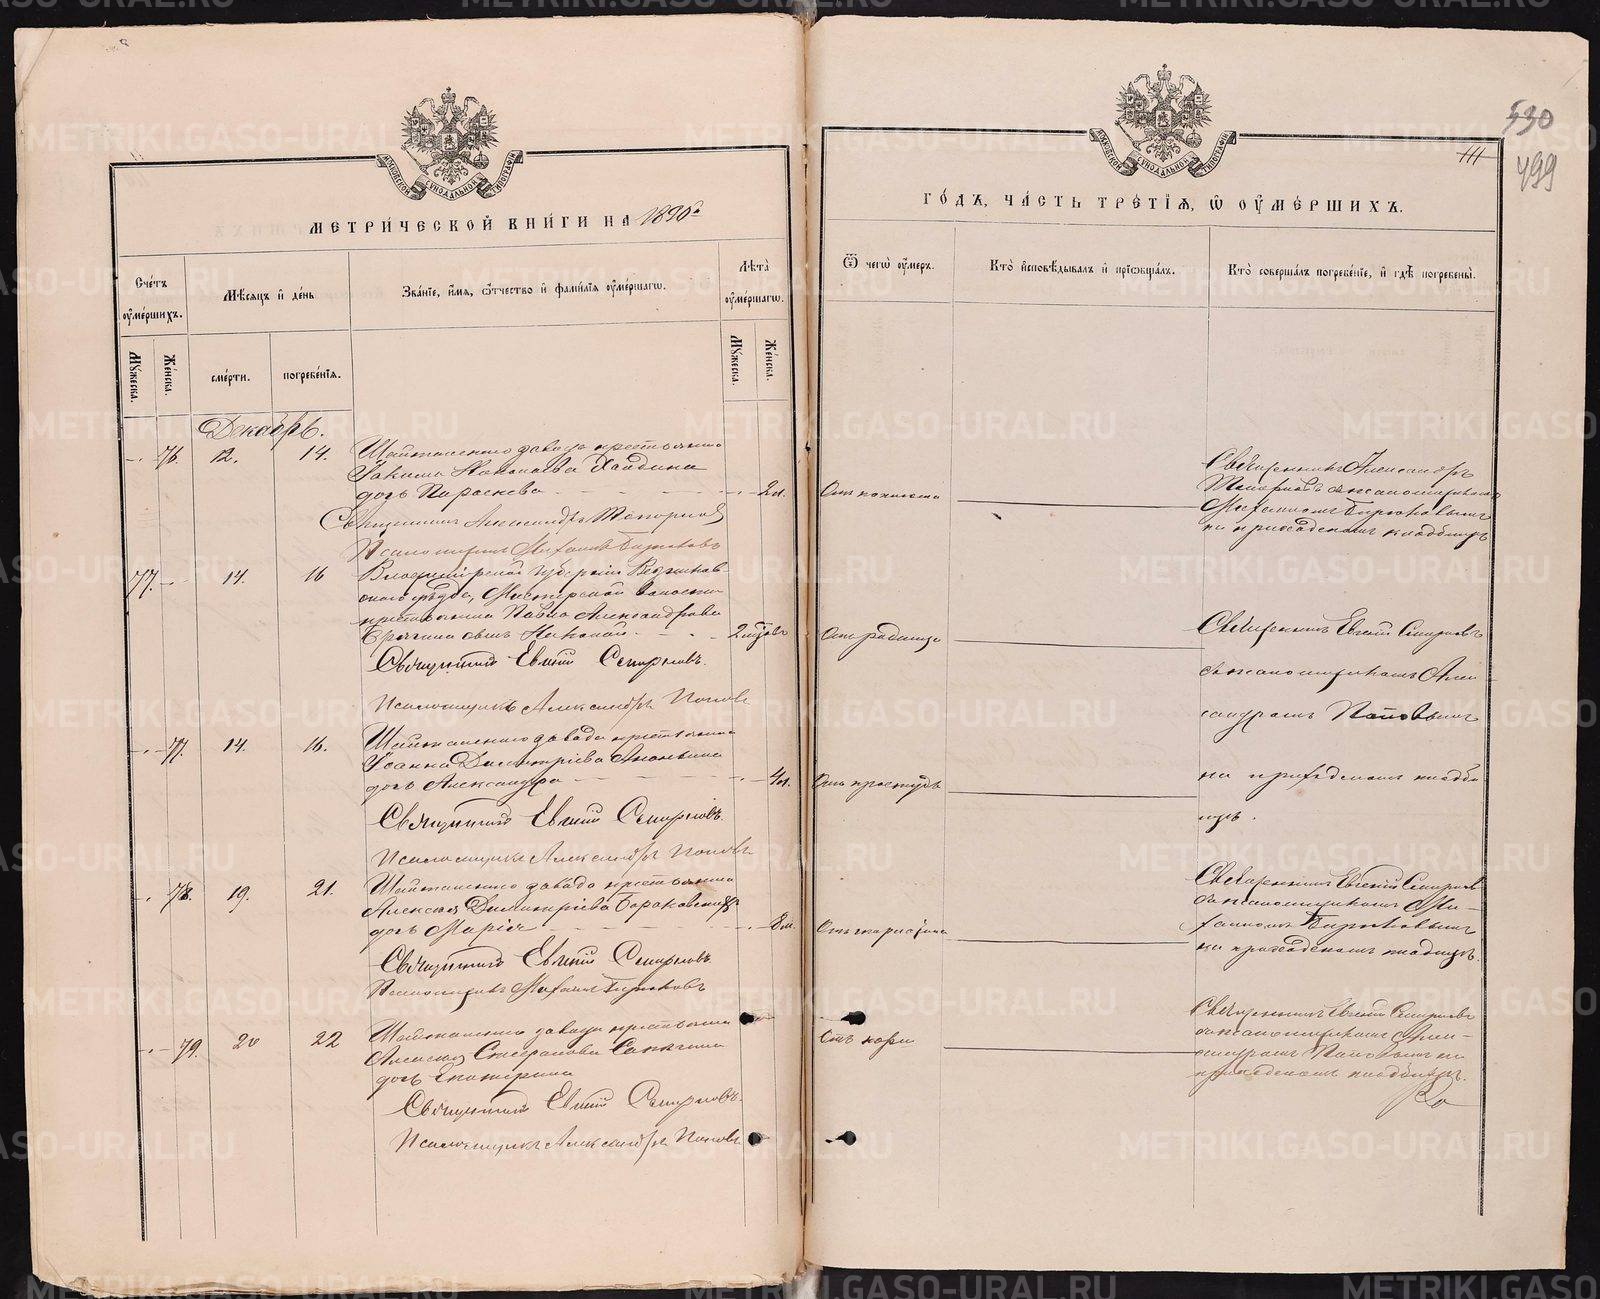 530
111
499
МОСКОВСКОЙ СѴНОДАЛЬНОЙ ТИПОГРАФІИ
МЕТРИ́ЧЕСКОЙ КНИ́ГИ НА 1890 г.
Счетъ оумершихъ.
Мѣсяцъ и день
Званіе, имя, отчество и фамилія оумершагω.
Лѣта оумершагω.
Мужеска.
Женска.
смерти.
погребенія.
Мужеска.
Женска.
Декабрь.
76. 12. 14. Шайтанскаго завода крестьянина
Іакима Хайдина
дочь Параскева 2 л.
Священникъ Александръ Топорковъ
Псаломщикъ Михаилъ Бирюковъ
77. 14. 16 Владимірской губерніи Вязников-
скаго уѣзда, Мстерской волости
крестьянина Павла Александрова
сынъ Николай 2 мѣсяц.
Священникъ Евгеній Смирновъ.
Псаломщикъ Александръ Поповъ
77. 14. 16. Шайтанскаго завода крестьянина
Іоанна Димитріева Ананьина
дочь Александра 4 л.
Священникъ Евгеній Смирновъ.
Псаломщикъ Александръ Поповъ
78. 19. 21. Шайтанскаго завода крестьянина
Алексѣя Димитріева
дочь Марія 8 м.
Священникъ Евгеній Смирновъ.
Псаломщикъ Михаилъ Бирюковъ
79. 20 22 Шайтанскаго завода крестьянина
Алексѣя Стефанова
дочь Екатерина
Священникъ Евгеній Смирновъ.
Псаломщикъ Александръ Поповъ
МОСКОВСКОЙ СѴНОДАЛЬНОЙ ТИПОГРАФІИ
ГО́ДЪ, ЧА́СТЬ ТРЕ́ТІѦ, Ѡ ОУМЕ́РШИХЪ.
Ѿ чегω оумеръ.
Кто исповѣдывалъ и пріωбщалъ.
Кто совершалъ погребеніе, и гдѣ погребены.
Отъ поноса
Священникъ Александръ
съ псаломщикомъ
Михаиломъ Бирюковымъ
на приходскомъ кладбищѣ
Отъ родимца
Священникъ Евгеній Смирновъ
съ псаломщикомъ Алек-
сандромъ Поповымъ
на приходскомъ кладби-
щѣ.
Отъ простуды
Священникъ Евгеній Смирновъ
съ псаломщикомъ Ми-
хаиломъ Бирюковымъ
на приходскомъ кладбищѣ.
Отъ кори
Священникъ Евгеній Смирновъ
съ псаломщикомъ Алек-
сандромъ Поповымъ на
приходскомъ кладбищѣ.
METRIKI.GASO-URAL.RU